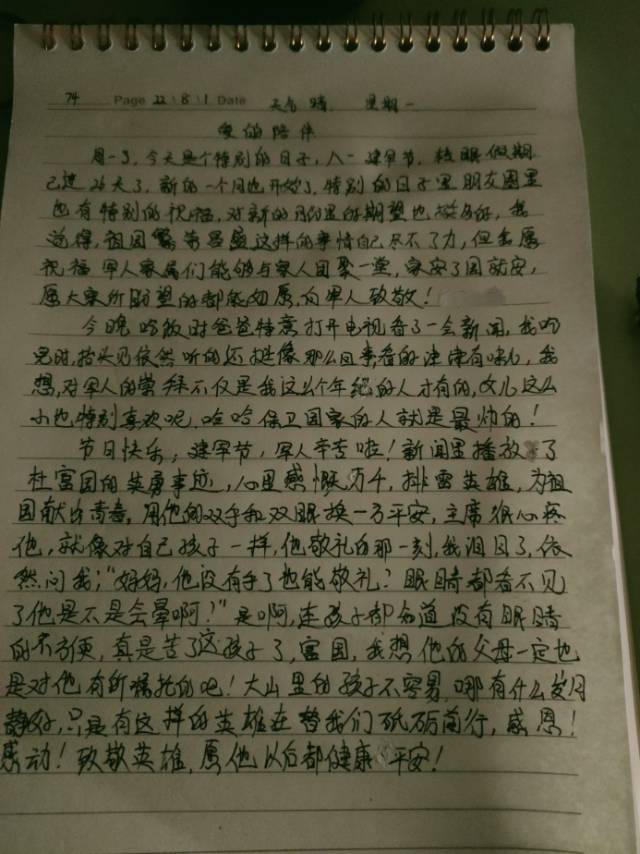 74 Page 22\8\1 Date 天气 晴 星期一
爱的陪伴
周一了,今天是个特别的日子,八一建军节,核眼假期
已过 天了,新的一个月也开始了,特别的日子里朋友圈里
也有特别的祝福,对新的月份里的期望也挺多的,我
觉得,祖国繁荣昌盛这样的事情自己尽不了力,但我愿
祝福军人家属们能够与家人团聚一堂,家安了国就安,
愿大家所盼望的都能如愿,向军人致敬!
今晚吃饭时爸爸特意打开电视看了一会新闻,我吃
完时,抬头见依然听的还挺像那么回事看的津津有味儿,我
想,对军人的崇拜不仅是我这么个年纪的人才有的,女儿这么
小也特别喜欢呢,哈哈保卫国家的人就是最帅的!
节日快乐,建军节,军人辛苦啦!新闻里播放了
杜富国的英勇事迹,心里感慨万千,排雷英雄,为祖
国献出青春,用他的双手和双眼换一方平安,主席很心疼
他,就像对自己孩子一样,他敬礼的那一刻,我泪目了,依
然问我:“妈妈,他没有手了也能敬礼?眼睛都看不见
了他是不是会晕啊?”是啊,连孩子都知道没有眼睛
的不方便,真是苦了这孩子了,富国,我想他的父母一定也
是对他有所福托的吧!大山里的孩子不容易,哪有什么岁月
静好,只是有这样的英雄在替我们砥砺前行,感恩!
感动!致敬英雄,愿他以后都健康 平安!